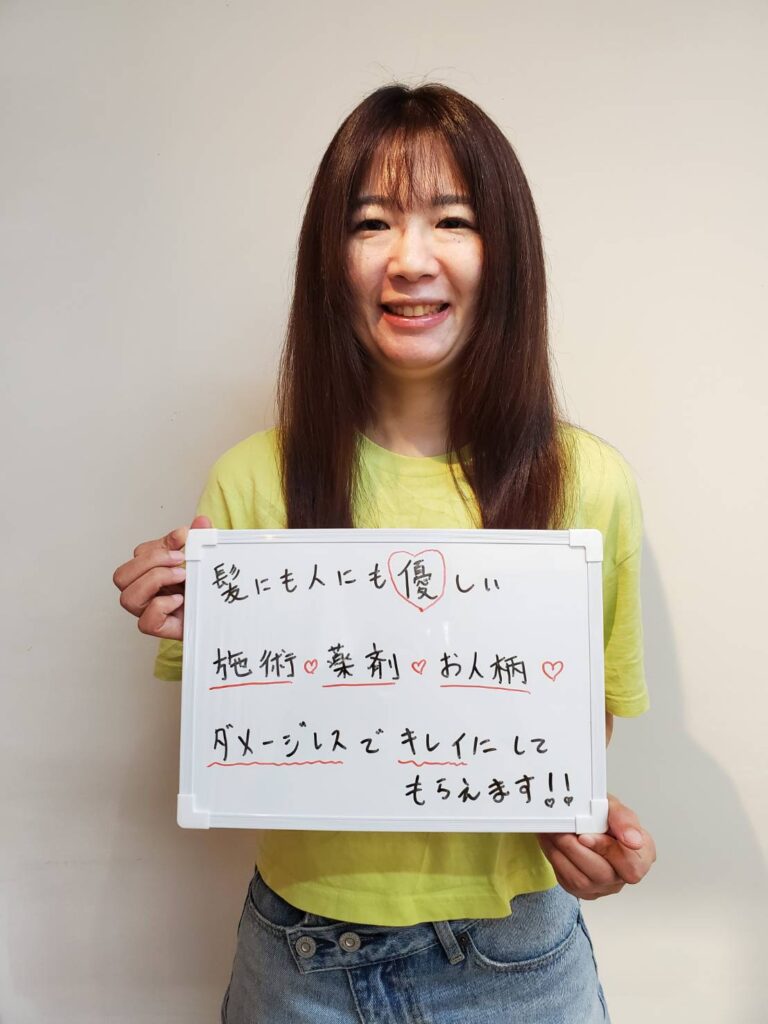 髪にも人にも優しい
施術♡薬剤♡お人柄♡
ダメージレスでキレイにして
もらえます!!